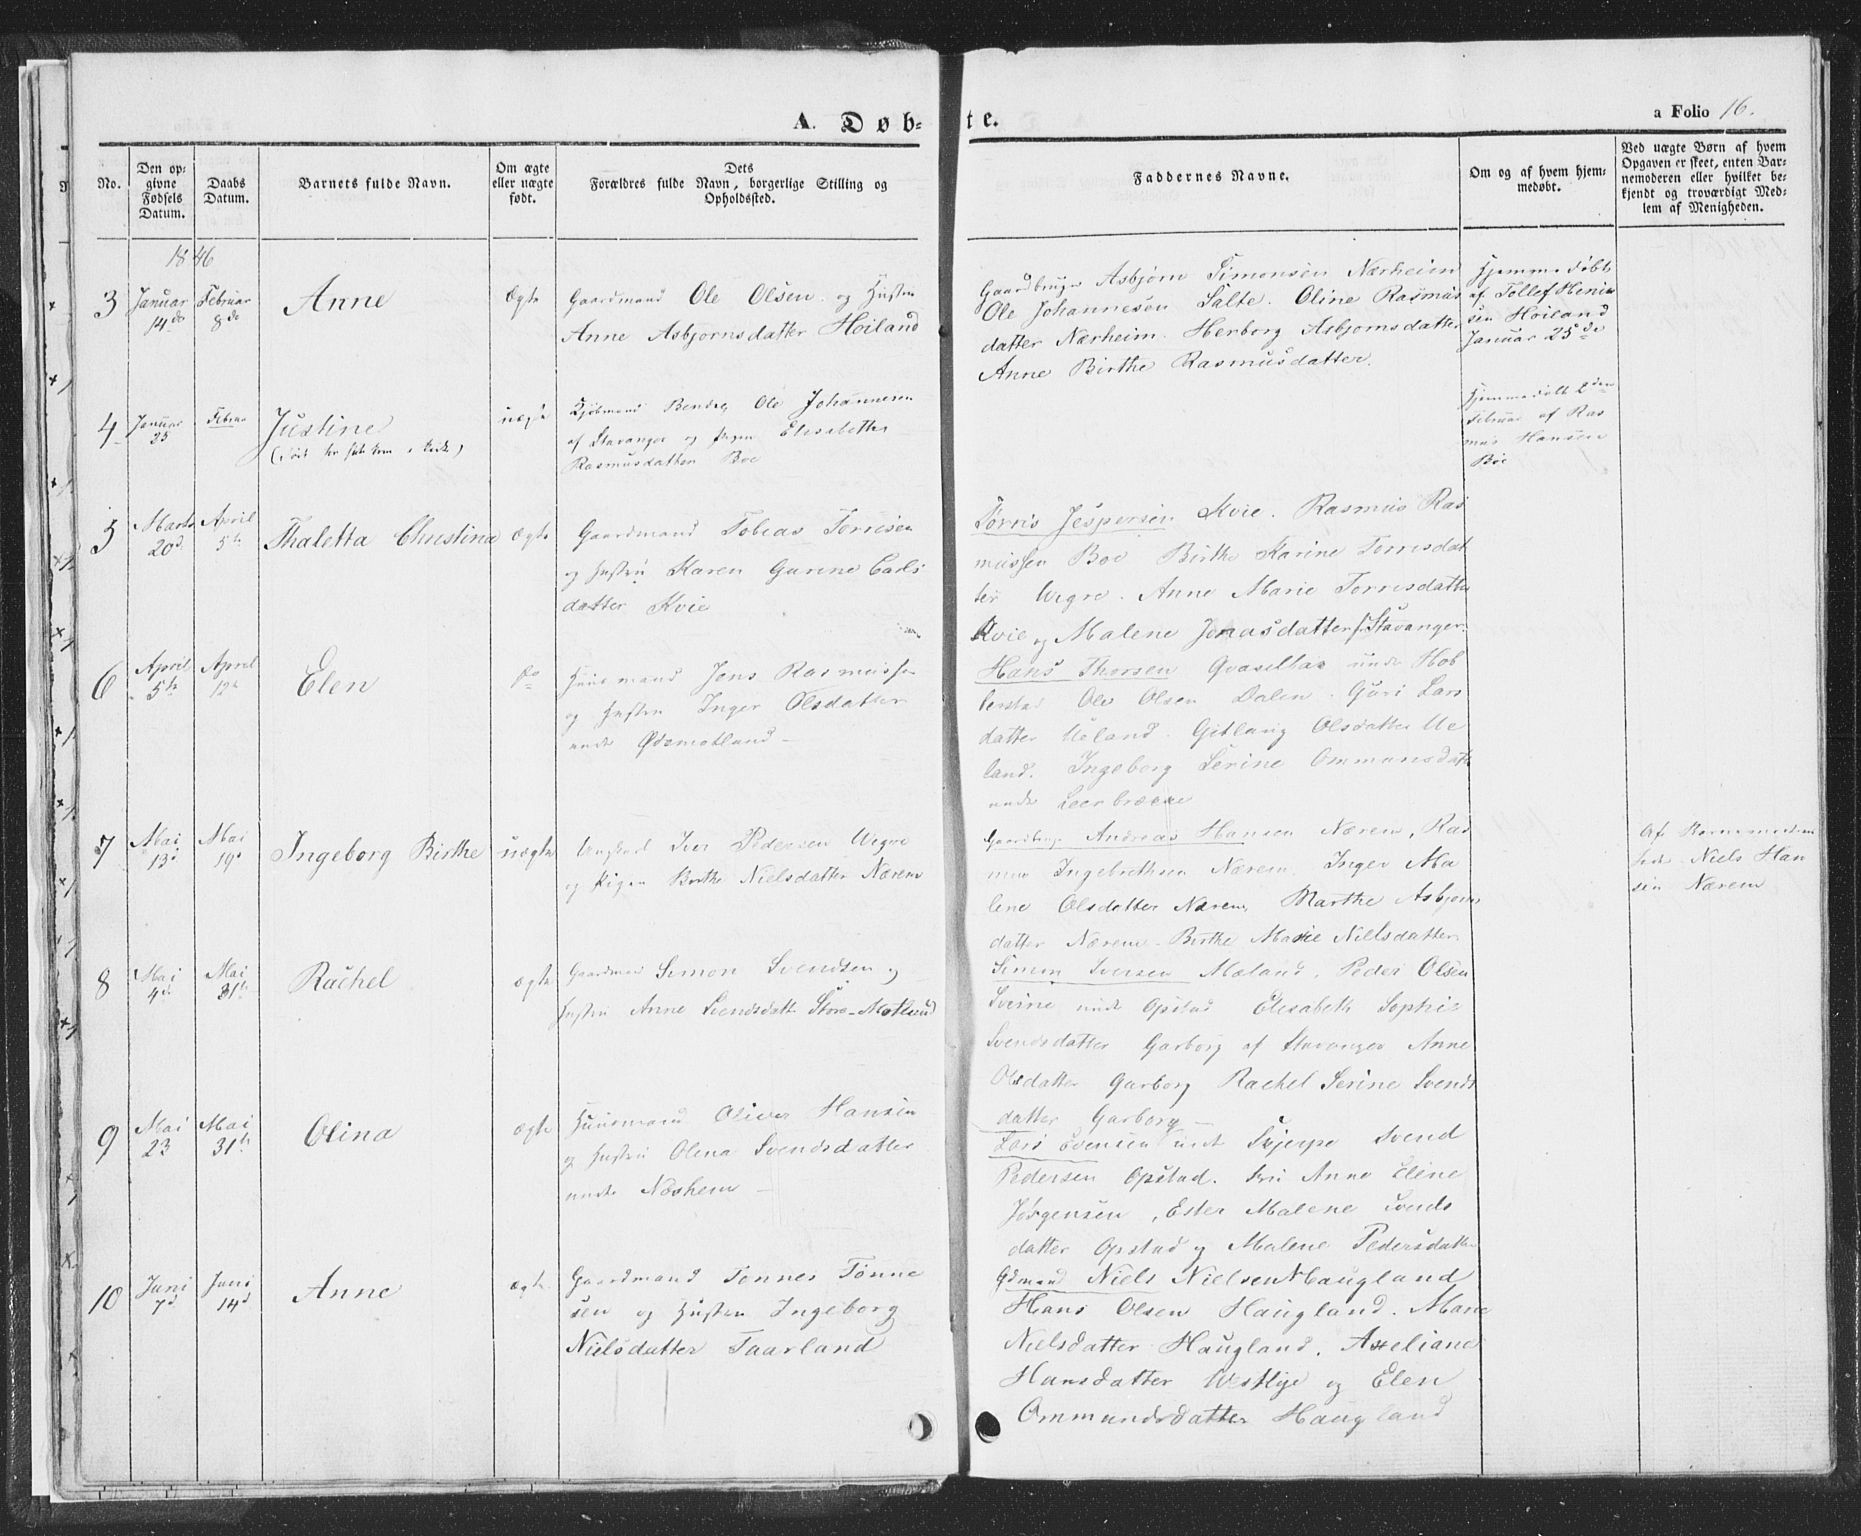 A. Døb-
te.
a Folio 16.
No.
Den op-
givne
Fødsels
Datum.
Daabs
Datum.
Barnets fulde Navn.
Om ægte
eller uægte
født.
Dets
Forældres fulde Navn, borgerlige Stilling og
Opholdssted.
Faddernes Navne.
Om og af hvem hjem-
medøbt.
Ved uægte Børn af hvem
Opgaven er skeet, enten Bar-
nemoderen eller hvilket be-
kjendt og troværdigt Med-
lem af Menigheden.
1846
3
Januar
14de
Februar
8de
Anne
Ægte
Gaardmand Ole Olsen og Hustru
Anne Asbjørnsdatter Høiland
Gaardbruger Asbjørn Simonsen Nærheim
Ole Johannesen Salte. Oline Rasmus
datter Nærheim. Herborg Asbjørnsdatter
Anne Birthe Rasmusdatter.
Hjemmedøbt
af Tollef Henin
sen Høiland
Januar 25de
4
Januar
25
Februar
Justine
uægte
Kjøbmand Ole Johannesen
af Stavanger og Pigen Elisabeth
Rasmusdatter Boe
Hjemmedøbt 2den
Februar af Ras
mus Hansen
Boe
5
Marts
20d
April
5te
Thaletta Christina
Ægte
Gaardmand Tobias Torrisen
og Hustru Karen Gurine Carls
datter Kvie
Torris Jespersen Kvie. Rasmus Ras
mussen Boe Birthe Karine Torrisdat
ter Wigre. Anne Marie Torrisdatter
Kvie og Malene Jonasdatter Stavanger.
6
April
5te
April
12te
Elen
do
Huusmand Jens Rasmussen
og Hustru Inger Olsdatter
unde Ødemotland
Hans Thorsen unde Hob
berstad Ole Olsen Dalen. Guri Lars
datter Ueland. Gitlaug Olsdatter Ue
land. Ingeborg Serine Ommunsdatt
unde Leerbrække
7
Mai
13d
Mai
19d
Ingeborg Birthe
uægte
Ungkarl Iver Pedersen Wigre
og Pigen Berthe Nielsdatter Nærem
Gaardbruger Andreas Hansen Nærem, Ras
mus Ingebrethsen Nærem. Inger Ma
lene Olsdatter Nærem, Marthe Asbjørns
datter Nærem. Birthe Marie Nielsdatter.
Af Barnemoderens
Niels Han
sen Nærem
8
Mai
4d
Mai
31te
Rachel
ægte
Gaardman Simon Svendsen og
Hustru Anne Svendsdatt. Store-Motland
Simon Iversen Mæland. Peder Olsen
unde Opstad Elisabeth Sophie
Svendsdatter Garborg af Stavanger Anne
Olsdatter Garborg Rachel Serine Svends
datter Garborg
9
Mai
23
Mai
31te
Olina
ægte
Huusmand Oliver Hansen
og Hustru Olena Svendsdatter
unde Næshem
Lars Svensen unde Skjerpe Svend
Pedersen Opstad. Anne Eline
Jørgensen, Ester Malene Svends
datter Opstad og Malene Pedersdatter
10
Juni
7d
Juni
14d
Anne
ægte
Gaardmand Tønnes Tønne
sen og Hustru Ingeborg
Nielsdatter Taarland
Gdmand Niels Nielsen Haugland
Hans Olsen Haugland. Marie
Nielsdatter Haugland. Axeliane
Hansdatter Westlye og Elen
Ommundsdatter Haugland